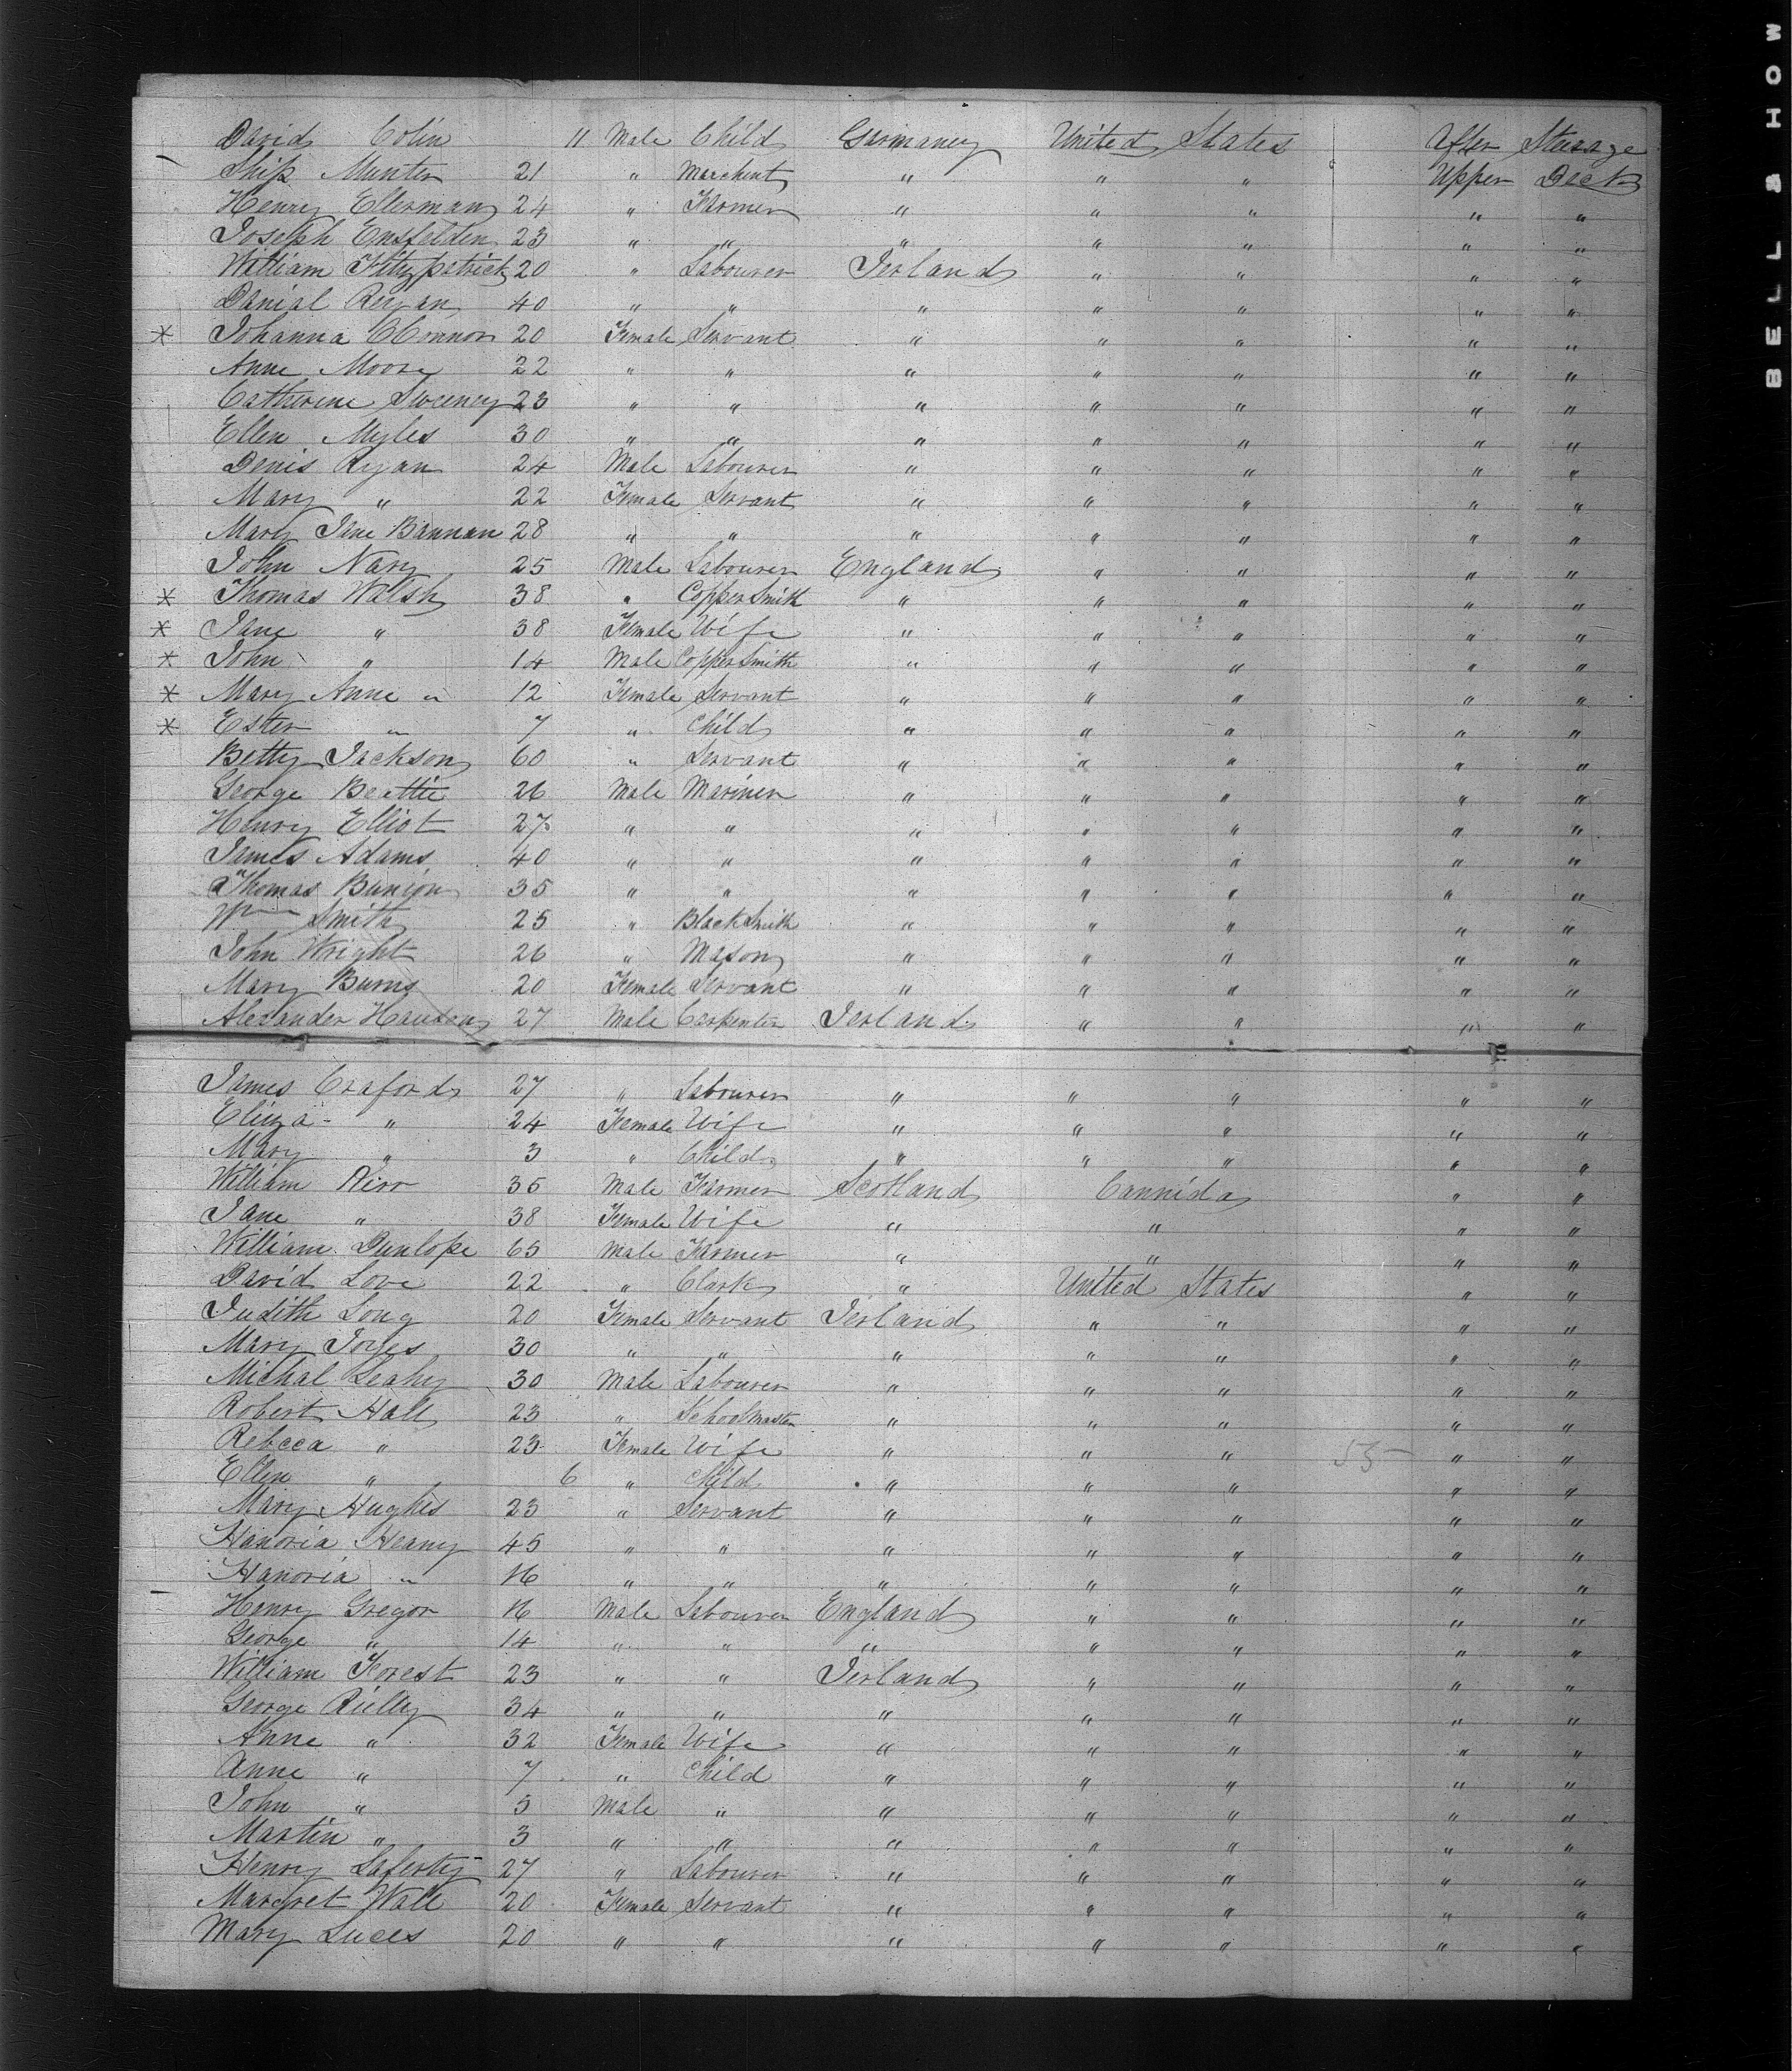 David Colin 11 Male Child Germaney United States After Steerage
Ship Munter 21 " Marchent " " " Upper Deck
Henry Ellerman 24 " Farmer " " " " "
Joseph Ensfelden 23 " " " " " " "
William Fitzpatrick 20 " Labourer Ierland " " " "
Danial Regan 40 " " " " " " "
* Johanna OConnor 20 Female Servant " " " " "
Anne Moore 22 " " " " " " "
Catherine Sweeney 23 " " " " " " "
Ellen Myles 30 " " " " " " "
Denis Ryan 24 Male Labourer " " " " "
Mary " 22 Female Servant " " " " "
Mary Jane Bannan 28 " " " " " " "
John Nary 25 Male Labourer England " " " "
* Thomas Walsh 38 " CopperSmith " " " " "
* Jane " 38 Female Wife " " " " "
* John " 14 Male CopperSmith " " " " "
* Mary Anne " 12 Female Servant " " " " "
* Ester " 7 " Child " " " " "
Betty Jackson 60 " Servant " " " " "
George Beattie 26 Male Mariner " " " " "
Henry Elliot 27 " " " " " " "
James Adams 40 " " " " " " "
Thomas Bunion 35 " " " " " " "
Wm Smith 25 " BlackSmith " " " " "
John Wright 26 " Mason " " " " "
Mary Burns 20 Female Servant " " " " "
Alexander Hansen 27 Male Carpenter Ierland " " " "
James Craford 27 " Labourer " " " " "
Eliza " 24 Female Wife " " " " "
Mary " 3 " Child " " " " "
William 35 Male Farmer Scotland Cannida " "
Jane " 38 Female Wife " " " "
William Dunlope 65 Male Farmer " " " "
David Love 22 " Clark " United States " "
Judith Long 20 Female Servant Ierland " " " "
Mary Joyes 30 " " " " " " "
Michal Leahy 30 Male Labourer " " " " "
Robert Hall 23 " Schoolmaster " " " " "
Rebcca " 23 Female Wife " " " 55 " "
Ellen " 6 " Child " " " " "
Mary Hughes 23 " Servant " " " " "
Hanoria Heany 45 " " " " " " "
Hanoria " 16 " " " " " " "
Henry Gregor 16 Male Labourer England " " " "
George " 14 " " " " " " "
William Forest 23 " " Ierland " " " "
George Rielly 34 " " " " " " "
Anne " 32 Female Wife " " " " "
Anne " 7 " Child " " " " "
John " 5 Male " " " " " "
Martin " 3 " " " " " " "
Henry Laferty 27 " Labourer " " " " "
Margret Wall 20 Female Servant " " " " "
Mary Luces 20 " " " " " " "
BELL & HOW